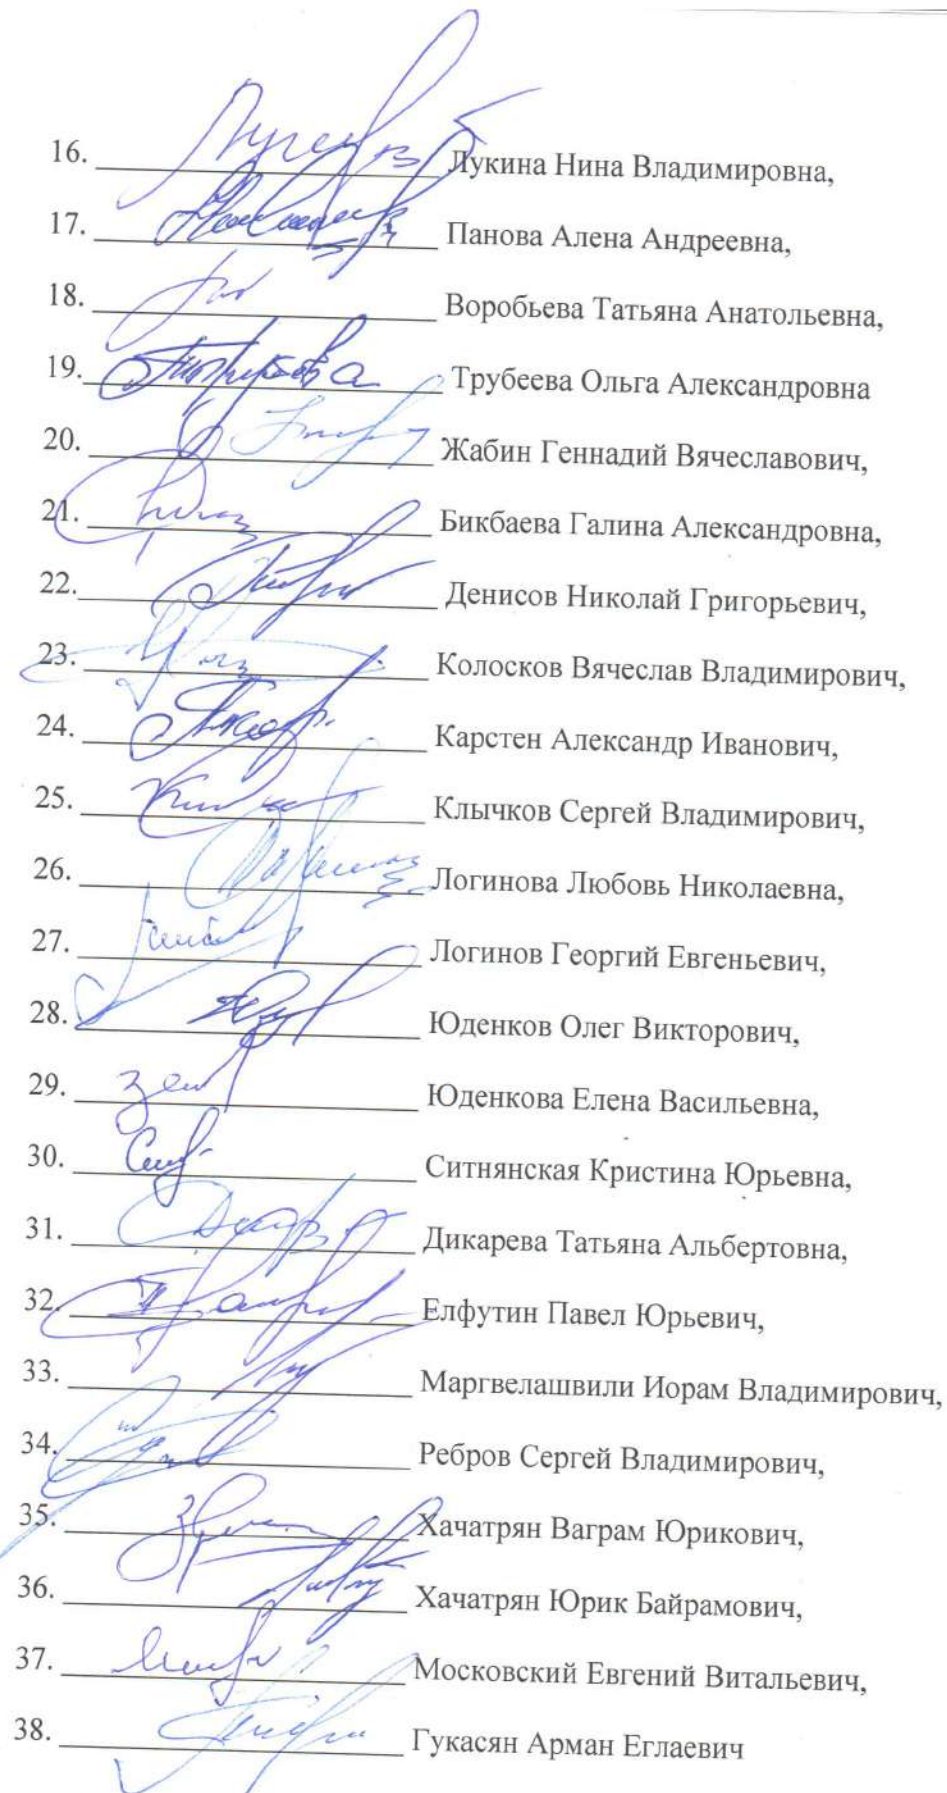 16. Лукина Нина Владимировна,
17. Панова Алена Андреевна,
18. Воробьева Татьяна Анатольевна,
19. Трубеева Ольга Александровна
20. Жабин Геннадий Вячеславович,
21. Бикбаева Галина Александровна,
22. Денисов Николай Григорьевич,
23. Колосков Вячеслав Владимирович,
24. Карстен Александр Иванович,
25. Клычков Сергей Владимирович,
26. Логинова Любовь Николаевна,
27. Логинов Георгий Евгеньевич,
28. Юденков Олег Викторович,
29. Юденкова Елена Васильевна,
30. Ситнянская Кристина Юрьевна,
31. Дикарева Татьяна Альбертовна,
32. Елфутин Павел Юрьевич,
33. Маргвелашвили Иорам Владимирович,
34. Ребров Сергей Владимирович,
35. Хачатрян Ваграм Юрикович,
36. Хачатрян Юрик Байрамович,
37. Московский Евгений Витальевич,
38. Гукасян Арман Еглаевич